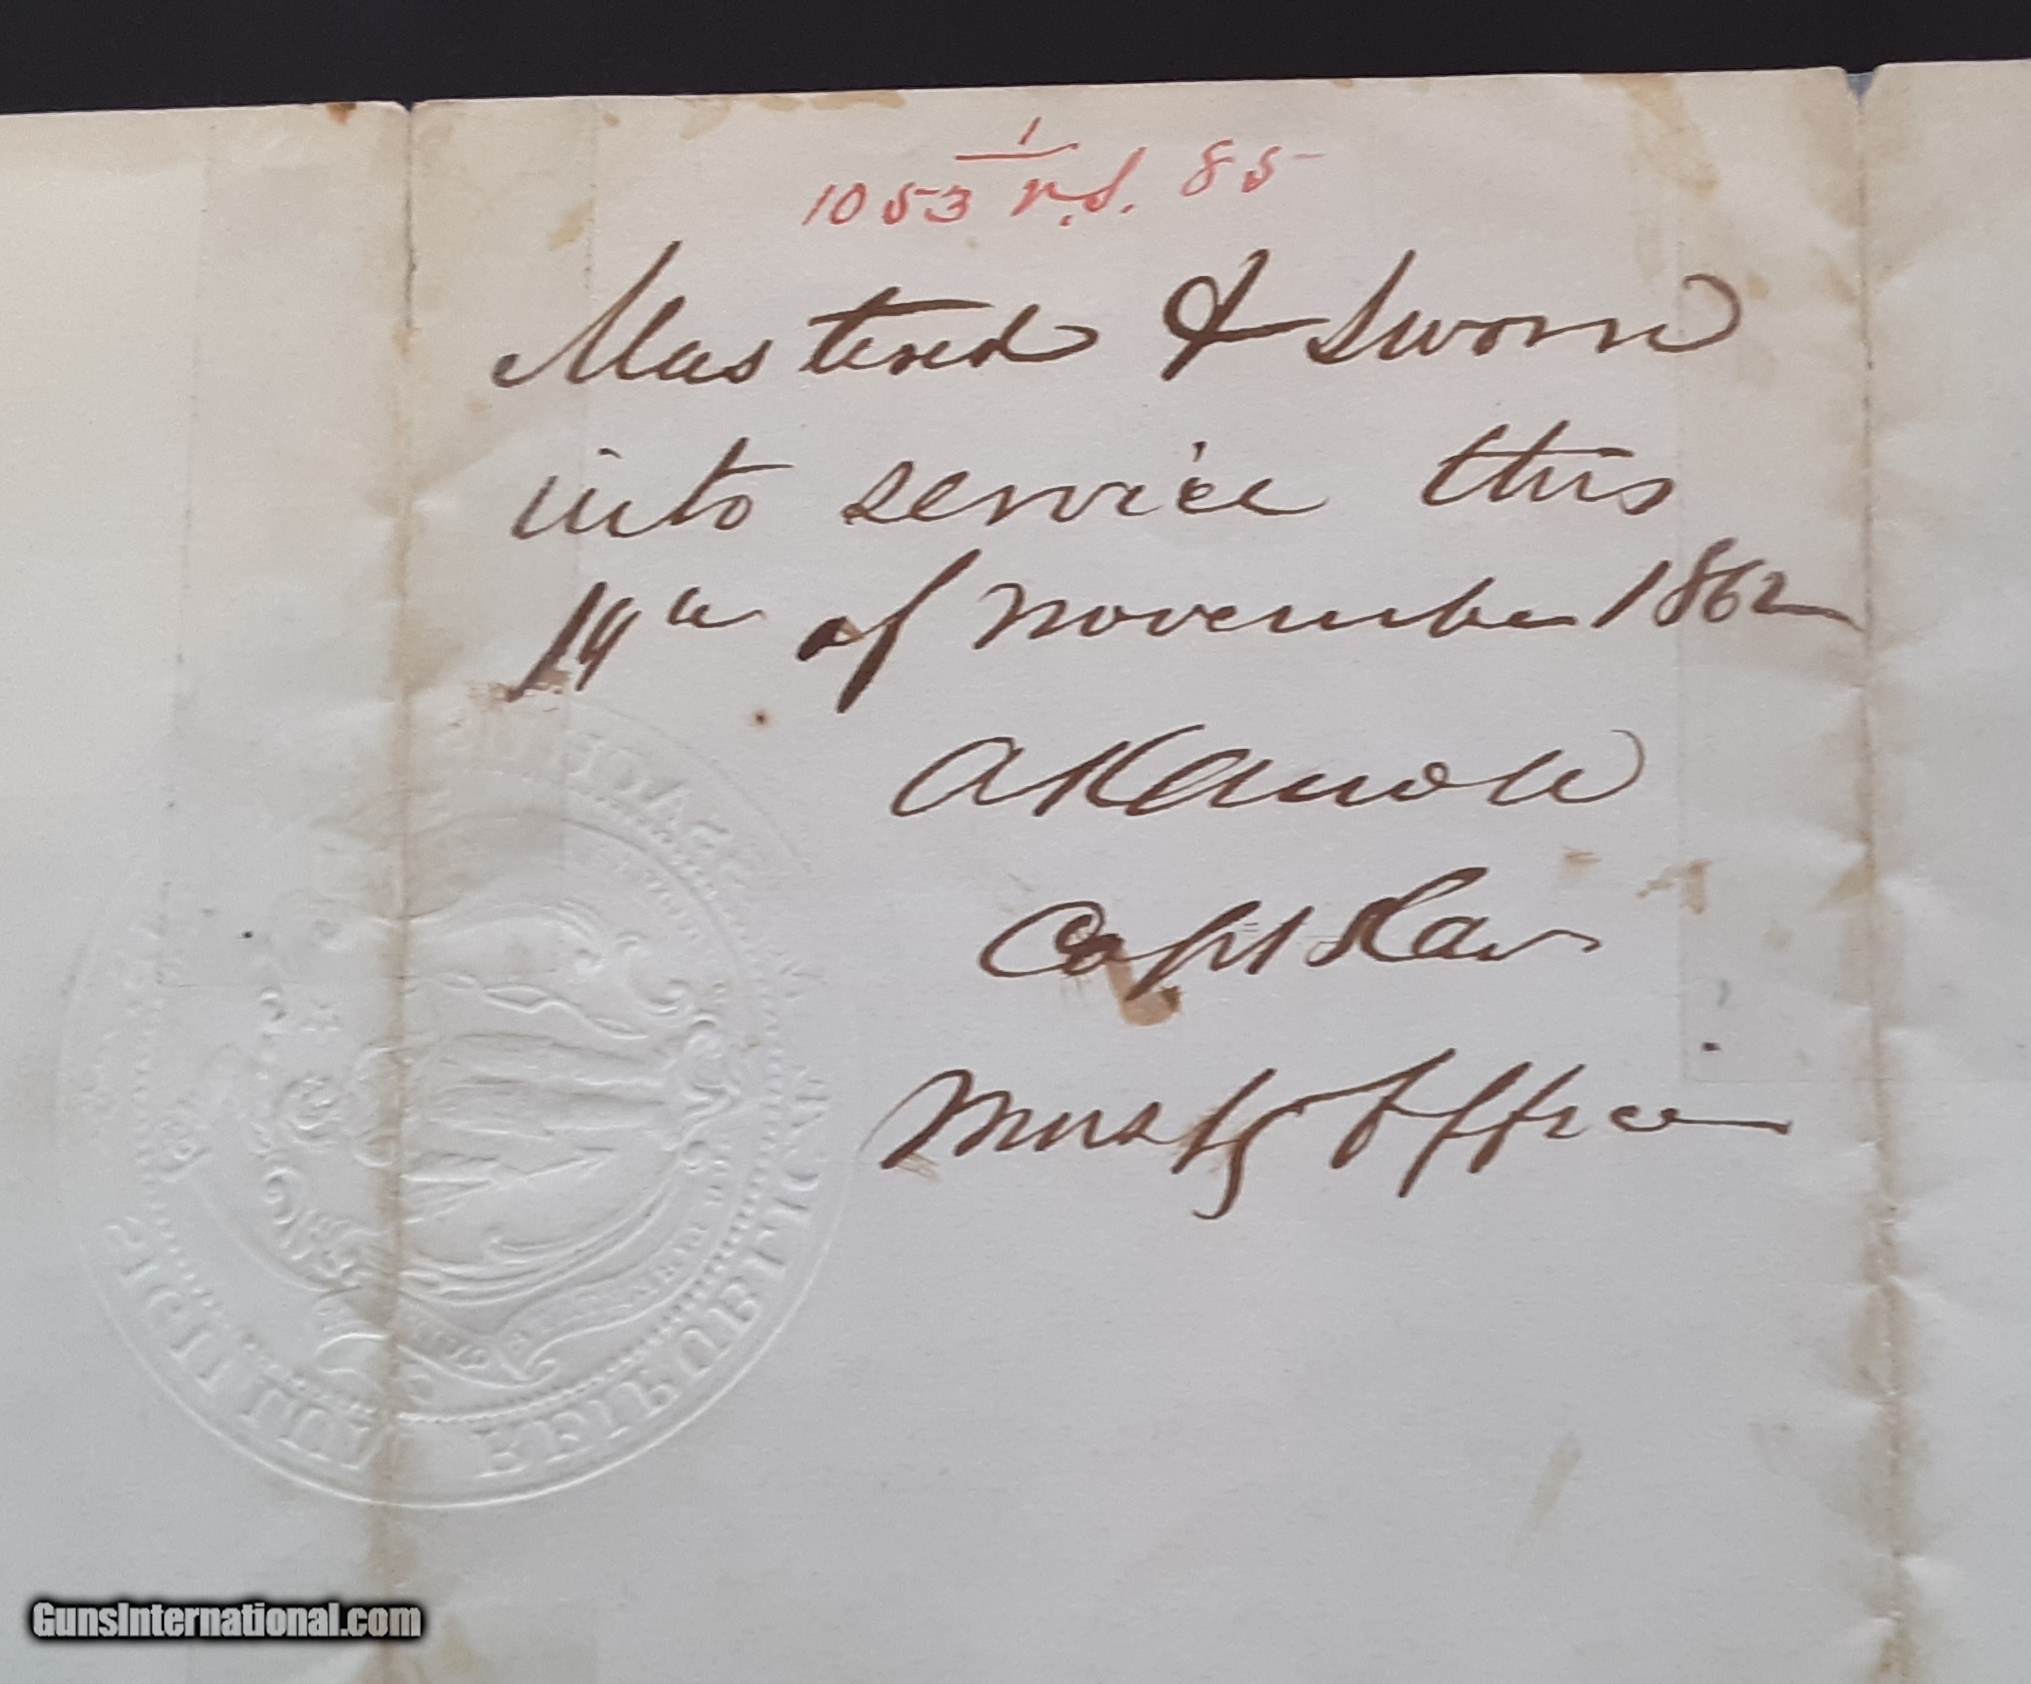 1
1053 r.s. 85
Mustered & Sworn
into service this
19th of November 1862
A K Arnold
Capt 5 Cav
Mustg Officer
GunsInternational.com